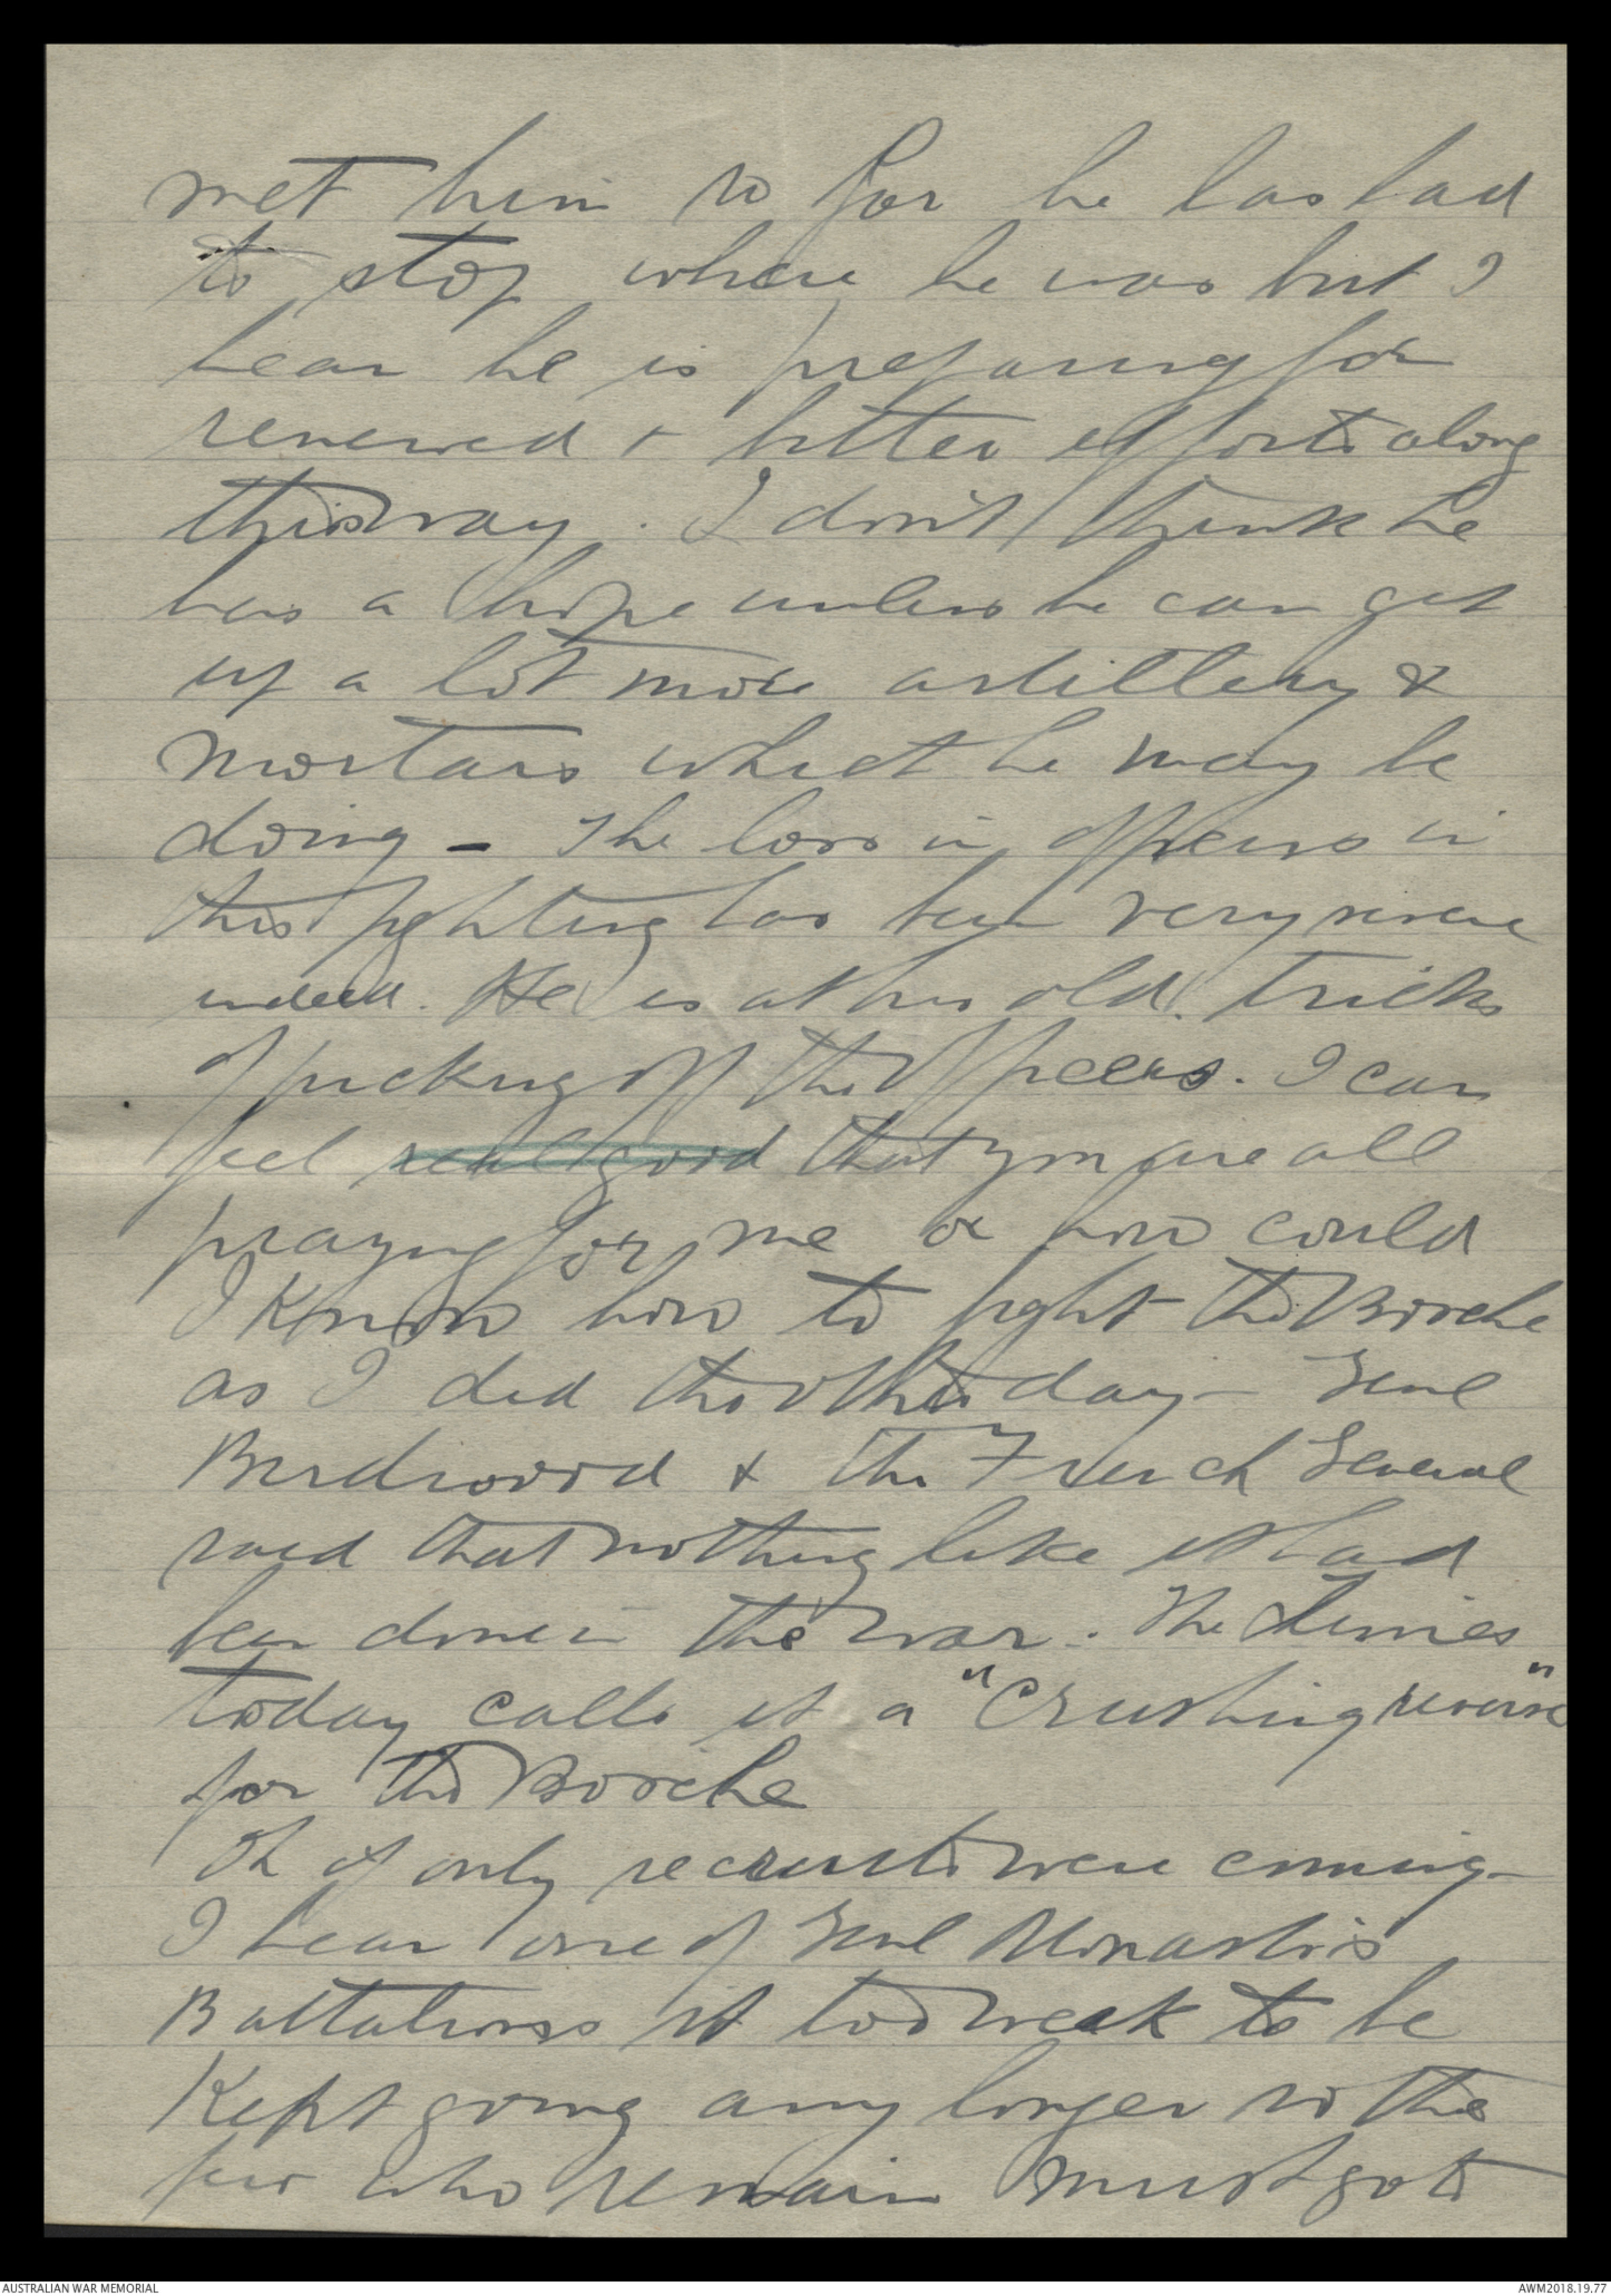 met him so far he has had
to stop where he was but I
hear he is preparing for
renewed & bitter efforts along
this way. I don't think he
has a hope unless he can get
up a lot more artillery &
mortars which he may be
doing - The loss in officers in
this fighting has been very severe
indeed. He is at his old tricks
of picking off the officers. I can
feel real good that you are all
praying for me or how could
I know how to fight the Boche
as I did the other day - Genl
Birdwood & the French General
said that nothing like it had
been done in the war. The Times
today calls it a "Crushing reverse"
for the Boche
Oh if only recruits were coming -
I hear one of Genl Monash's
Battalions is too weak to be
Kept going any longer so the
few who remain must go to
AUSTRALIAN WAR MEMORIAL
AWM2018.19.77